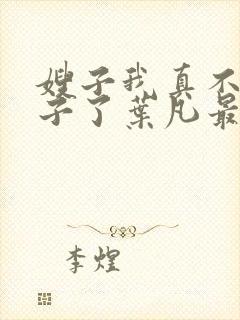 嫂子我真不
子了葉凡最
李煌